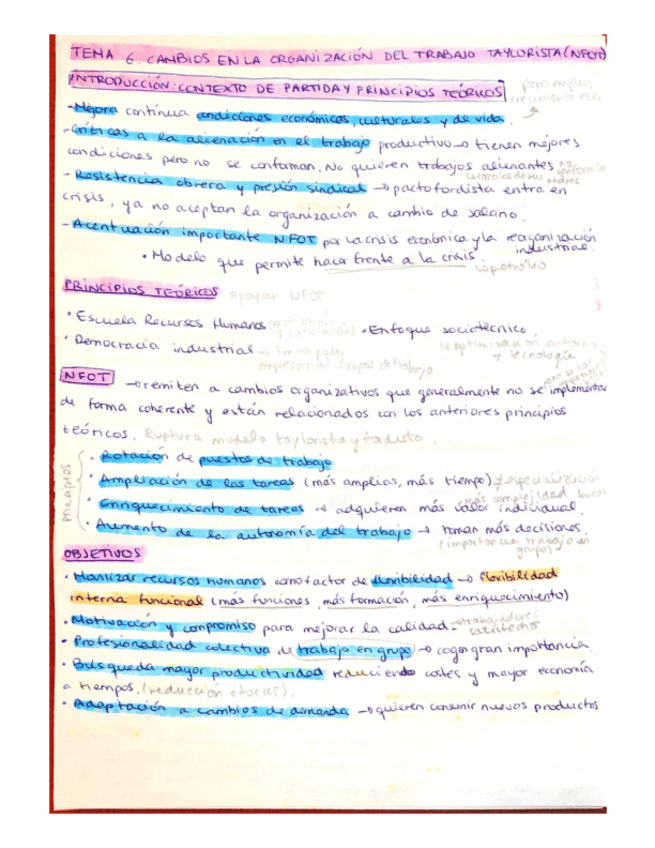 TEMA 6. CAMBIOS EN LA ORGANIZACIÓN DEL TRABAJO TAYLORISTA (NFOT)
INTRODUCCIÓN: CONTEXTO DE PARTIDA Y PRINCIPIOS TEÓRICOS
pleno empleo,
crecimiento eco.
-Mejora continua condiciones económicas, culturales y de vida.
-Críticas a la alienación en el trabajo productivo → tienen mejores
condiciones pero no se conforman. No quieren trabajos alienantes
padres
- Resistencia obrera y presión sindical → pacto fordista entra en
crisis, ya no aceptan la organización a cambio de salario.
- Acentuación importante NFOT por la crisis económica y la reorganización
industrial.
• Modelo que permite hacer frente a la crisis.
PRINCIPIOS TEÓRICOS apoyan NFOT
• Escuela Recursos Humanos
• Enfoque sociotécnico
• Democracia industrial
y tecnología
grupos de trabajo
NFOT → remiten a cambios organizativos que generalmente no se implementan
de forma coherente y están relacionados con los anteriores principios
teóricos. Ruptura modelo taylorista y fordista.
principios
• Rotación de puestos de trabajo
• Ampliación de las tareas (más amplias, más tiempo) ≠ especialización
más complejidad tareas
• Enriquecimiento de tareas → adquieren más valor individual.
• Aumento de la autonomía del trabajo → toman más decisiones.
(importancia trabajo en
grupo)
OBJETIVOS
• Movilizar recursos humanos como factor de flexibilidad → flexibilidad
interna funcional (más funciones, más formación, más enriquecimiento)
• Motivación y compromiso para mejorar la calidad - trabajadores
satisfechos
• Profesionalidad colectiva de trabajo en grupo → coge gran importancia.
• Búsqueda mayor productividad reduciendo costes y mayor economía
a tiempos. (reducción
• Adaptación a cambios de demanda → quieren consumir nuevos productos